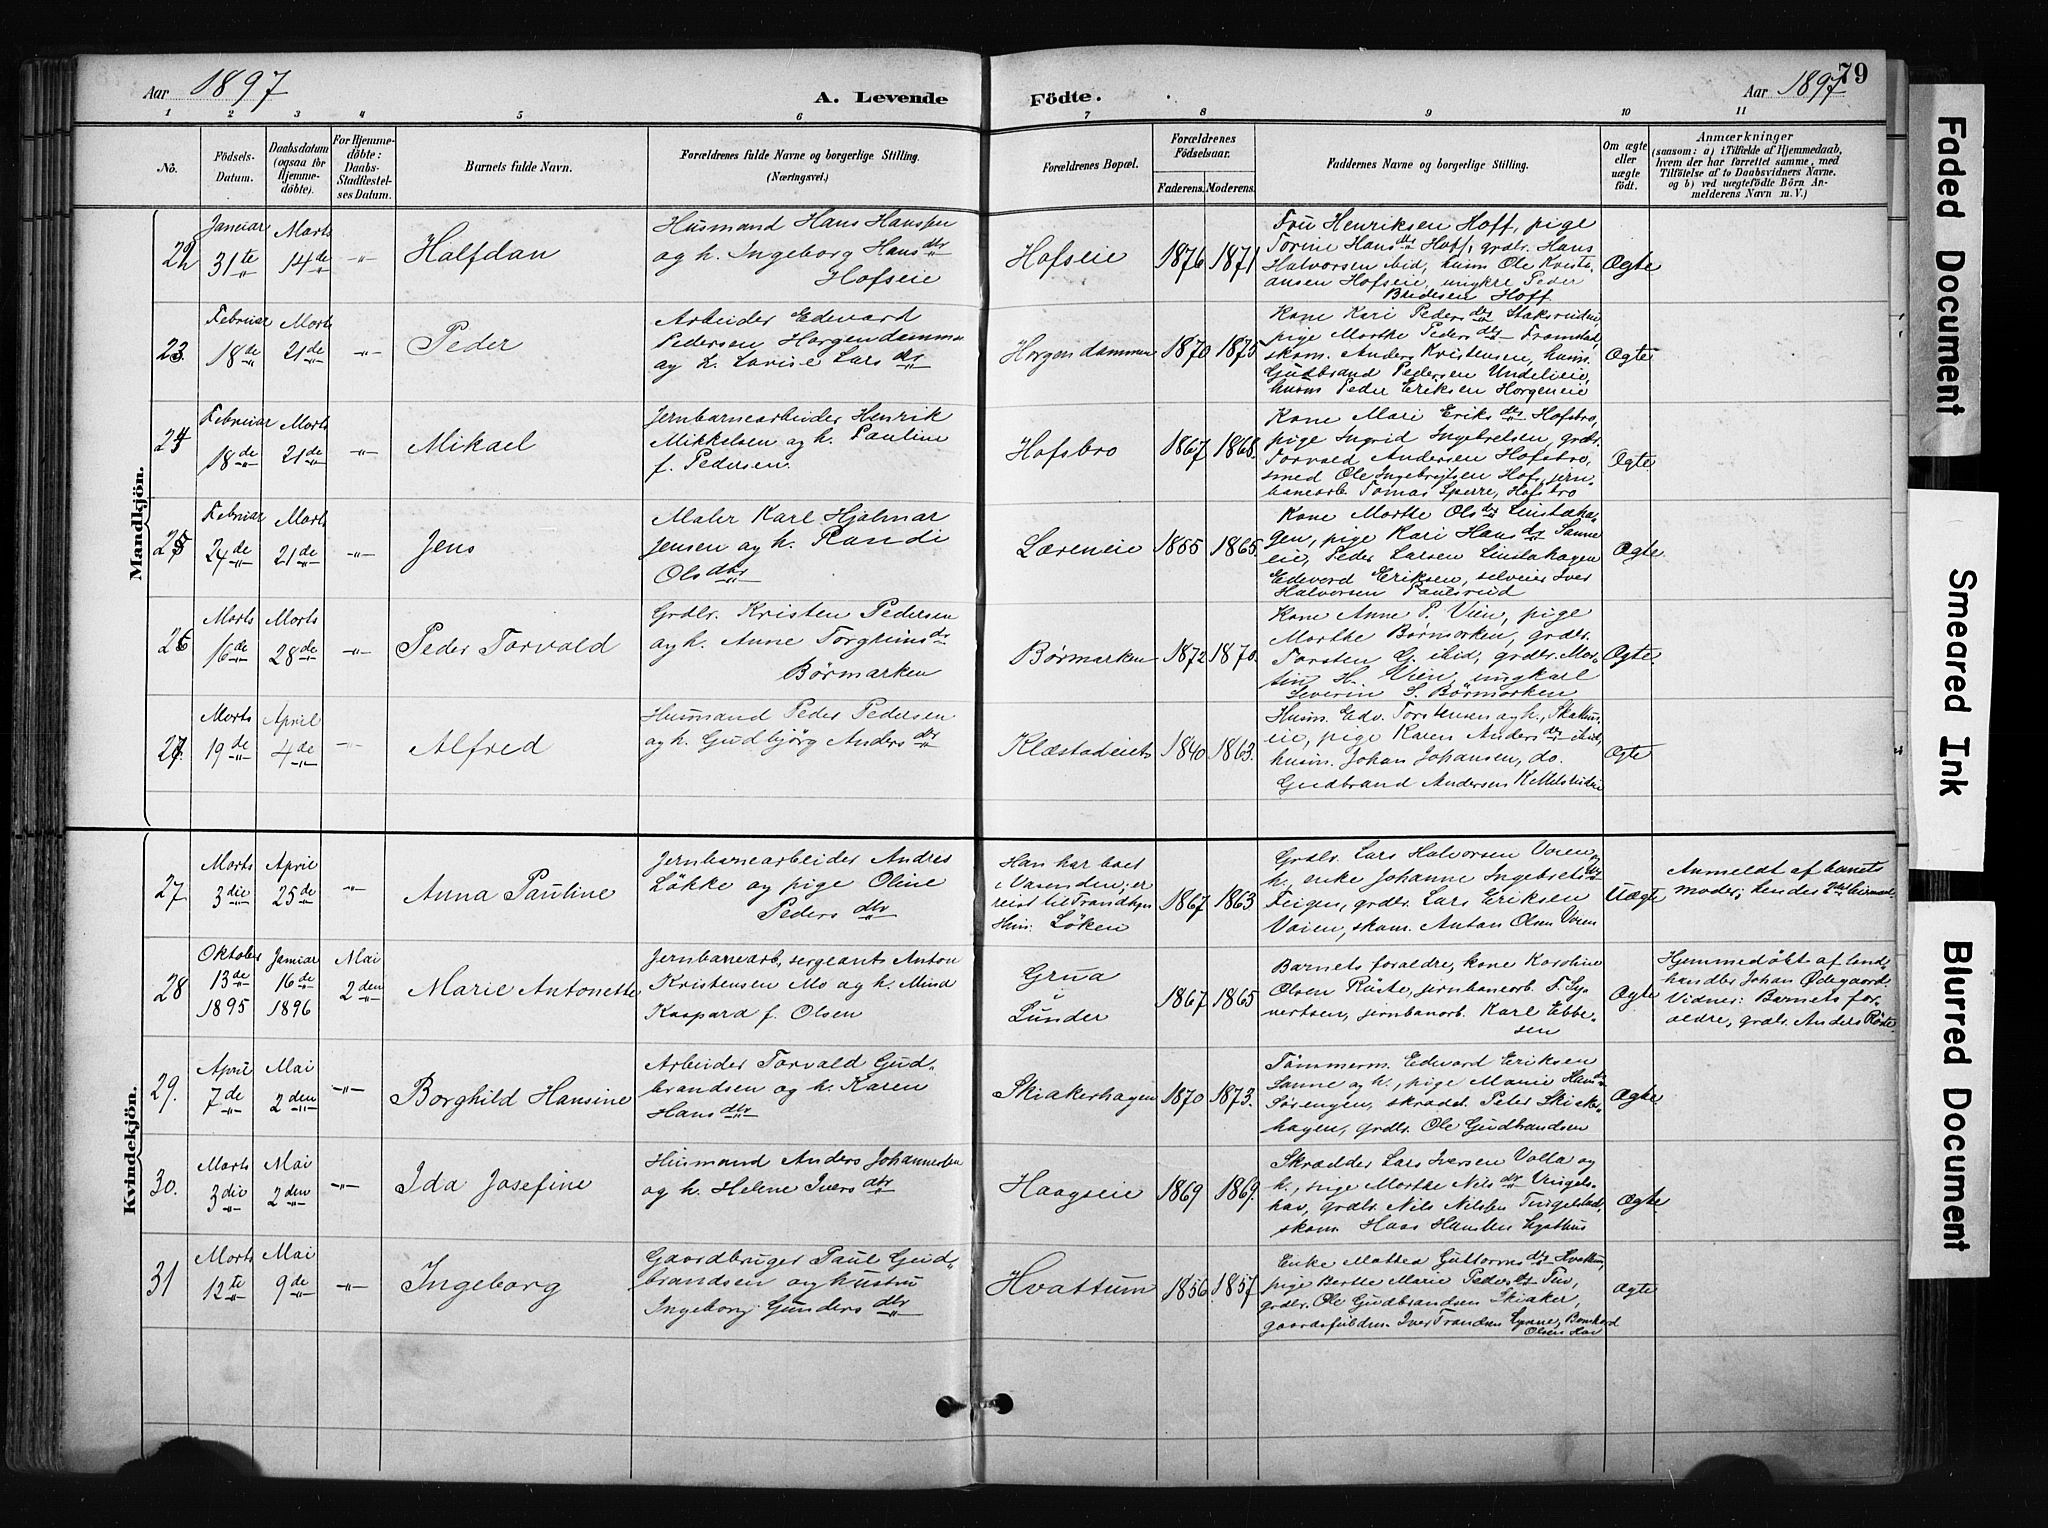 Aar 1897
A. Levende Födte.
Aar 1897
79
1 2 3 4 5 6 7 8 9 10 11
No.
Födsels-Datum.
Daabsdatum (ogsaa for Hjemme-döbte).
For Hjemme-döbte: Daabs-Stadfæstel-ses Datum.
Barnets fulde Navn.
Forældrenes fulde Navne og borgerlige Stilling. (Næringsvei.)
Forældrenes Bopæl.
Forældrenes Födselsaar.
Faderens. Moderens.
Faddernes Navne og borgerlige Stilling.
Om ægte eller uægte födt.
Anmærkninger
(saasom: a) i Tilfælde af Hjemmedaab,
hvem der har forrettet samme, med
Tilföielse af to Daabsvidners Navne.
og b) ved uægtefödte Börn An-
melderens Navn m. V.)
Mandkjön.
22
Januar 31te
Marts 14de
-"-
Halfdan
Husmand Hans Hanssen
og h. Ingeborg Hansdtr
Hofseie
Hofseie
1876 1871
Fru Henriksen Hoff, pige
Torine Hansdtr Hoff, grdbr. Hans
Halvorsen ibid, husm Ole Kristi-
ansen Hofseie, ungkrl Peder
Hoff
Ægte
23
Februar 18de
Marts 21de
-"-
Peder
Arbeider Edevard
Pedersen Horgendammen
og h. Lovise Larsdtr
Horgendammen
1870 1875
Kone Kari Pedersdtr
pige Marthe Pedersdtr Framstad,
skom. Anders Kristensen, husm.
Gudbrand Pedersen Undelieie,
husm Peder Eriksen Horgeneie
Ægte
24
Februar 18de
Marts 21de
-"-
Mikael
Jernbanearbeider Henrik
Mikkelsen og h. Pauline
f. Pedersen
Hofsbro
1867 1868.
Kone Mari Eriksdtr Hofsbro,
pige Ingrid Ingebretsen, grdbr.
Torvald Andersen Hofsbro,
smed Ole Ingebrigtsen Hof, jern-
banearb. Tomas Sperre, Hofsbro
Ægte
25
Februar 24de
Marts 21de
-"-
Jens
Maler Karl Hjalmar
Jensen og h. Randi
Olsdtr
Læreneie
1865.
Kone Marthe Olsdtr Linstaha-
gen, pige Kari Hansdtr Sanne-
eie, Peder Larsen Linstahagen
Edevard Eriksen, selveier Iver
Halvorsen Paulsrud
Ægte
26
Marts 16de
Marts 28de
-"-
Peder Torvald
Grdbr. Kristen Pedersen
og h. Anne Torgrimsdr
Børmarken
Børmarken
1872 1870.
Kone Anne P. Vien, pige
Marthe Børmarken, grdbr.
Torsten G. ibid, grdbr. Mar-
tin H. Vien, ungkarl
Severin S. Børmarken
Ægte.
27.
Marts 19de
April 4de
-"-
Alfred
Husmand Peder Pedersen
og h. Gudbjörg Andersdtr
Klæstadeiet
1840 1863.
Husm. Edv. Torstensen og h., Skattum-
eie, pige Karen Andersdtr ibid,
husm. Johan Johansen, do.
Gudbrand Andersen
Ægte
Kvindekjön.
27
Marts 3die
April 25de
-"-
Anna Pauline
Jernbanearbeider Andres
Løkke og pige Oline
Pedersdtr
Han har boet
i Vasenden; er
reist til Trondhjem
Hun: Løken
1867 1863
Grdbr. Lars Halvorsen Voien og
h, enke Johanne Ingebretsdtr
Teigen, grdbr. Lars Eriksen
Voien, skom. Anton Olsen Voien
Uægte
Anmeldt af barnets
moder; hendes 2det
28
Oktober 13de 1895
Januar 16de 1896
Mai 2den
Marie Antonette
Jernbanearb., sergeant Anton
Kristensen Mo og h. Mina
Kaspara f. Olsen
Grua
i
Lunder
1867. 1865
Barnets forældre, kone Karoline
Olsen Røste, jernbanearb. S. Sy-
vertsen, jernbanarb. Karl Ebbe-
sen
Ægte
Hjemmedøbt af land-
handler Johan Ødegaard.
Vidner: Barnets for-
ældre, grdbr. Anders Røste
29.
April 7de
Mai 2den
-"-
Borghild Hansine
Arbeider Torvald Gud-
brandsen og h. Karen
Hansdtr
Skiakerhagen
1870 1873.
Tømmerm. Edward Eriksen
Sanne og h., pige Marie Hansdtr
Sørengen, skræd. Peter Skiaker-
hagen, grdbr. Ole Gudbrandsen
Ægte.
30.
Marts 3die
Mai 2den
-"-
Ida Josefine
Husmand Anders Johannessen
og h. Helene Iversdtr
Haagseie
1869 1869.
Skrædder Lars Iversen Volla og
h., pige Marthe Nilsdtr Vingels-
hav, grdbr. Nils Nilssen Tingelstad,
skom Haas Hansen
Ægte
31
Marts 12te
Mai 9de
-"-
Ingeborg
Gaardbruger Paul Gud-
brandsen og hustru
Ingeborg Gundersdtr
Hvattum
1856 1857
Enke Mathea Guttormsdtr Hvattum,
pige Berthe Marie Pedersdtr
grdbr. Ole Gudbrandsen Skiaker,
Ægte
Faded Document
Smeared Ink
Blurred Document